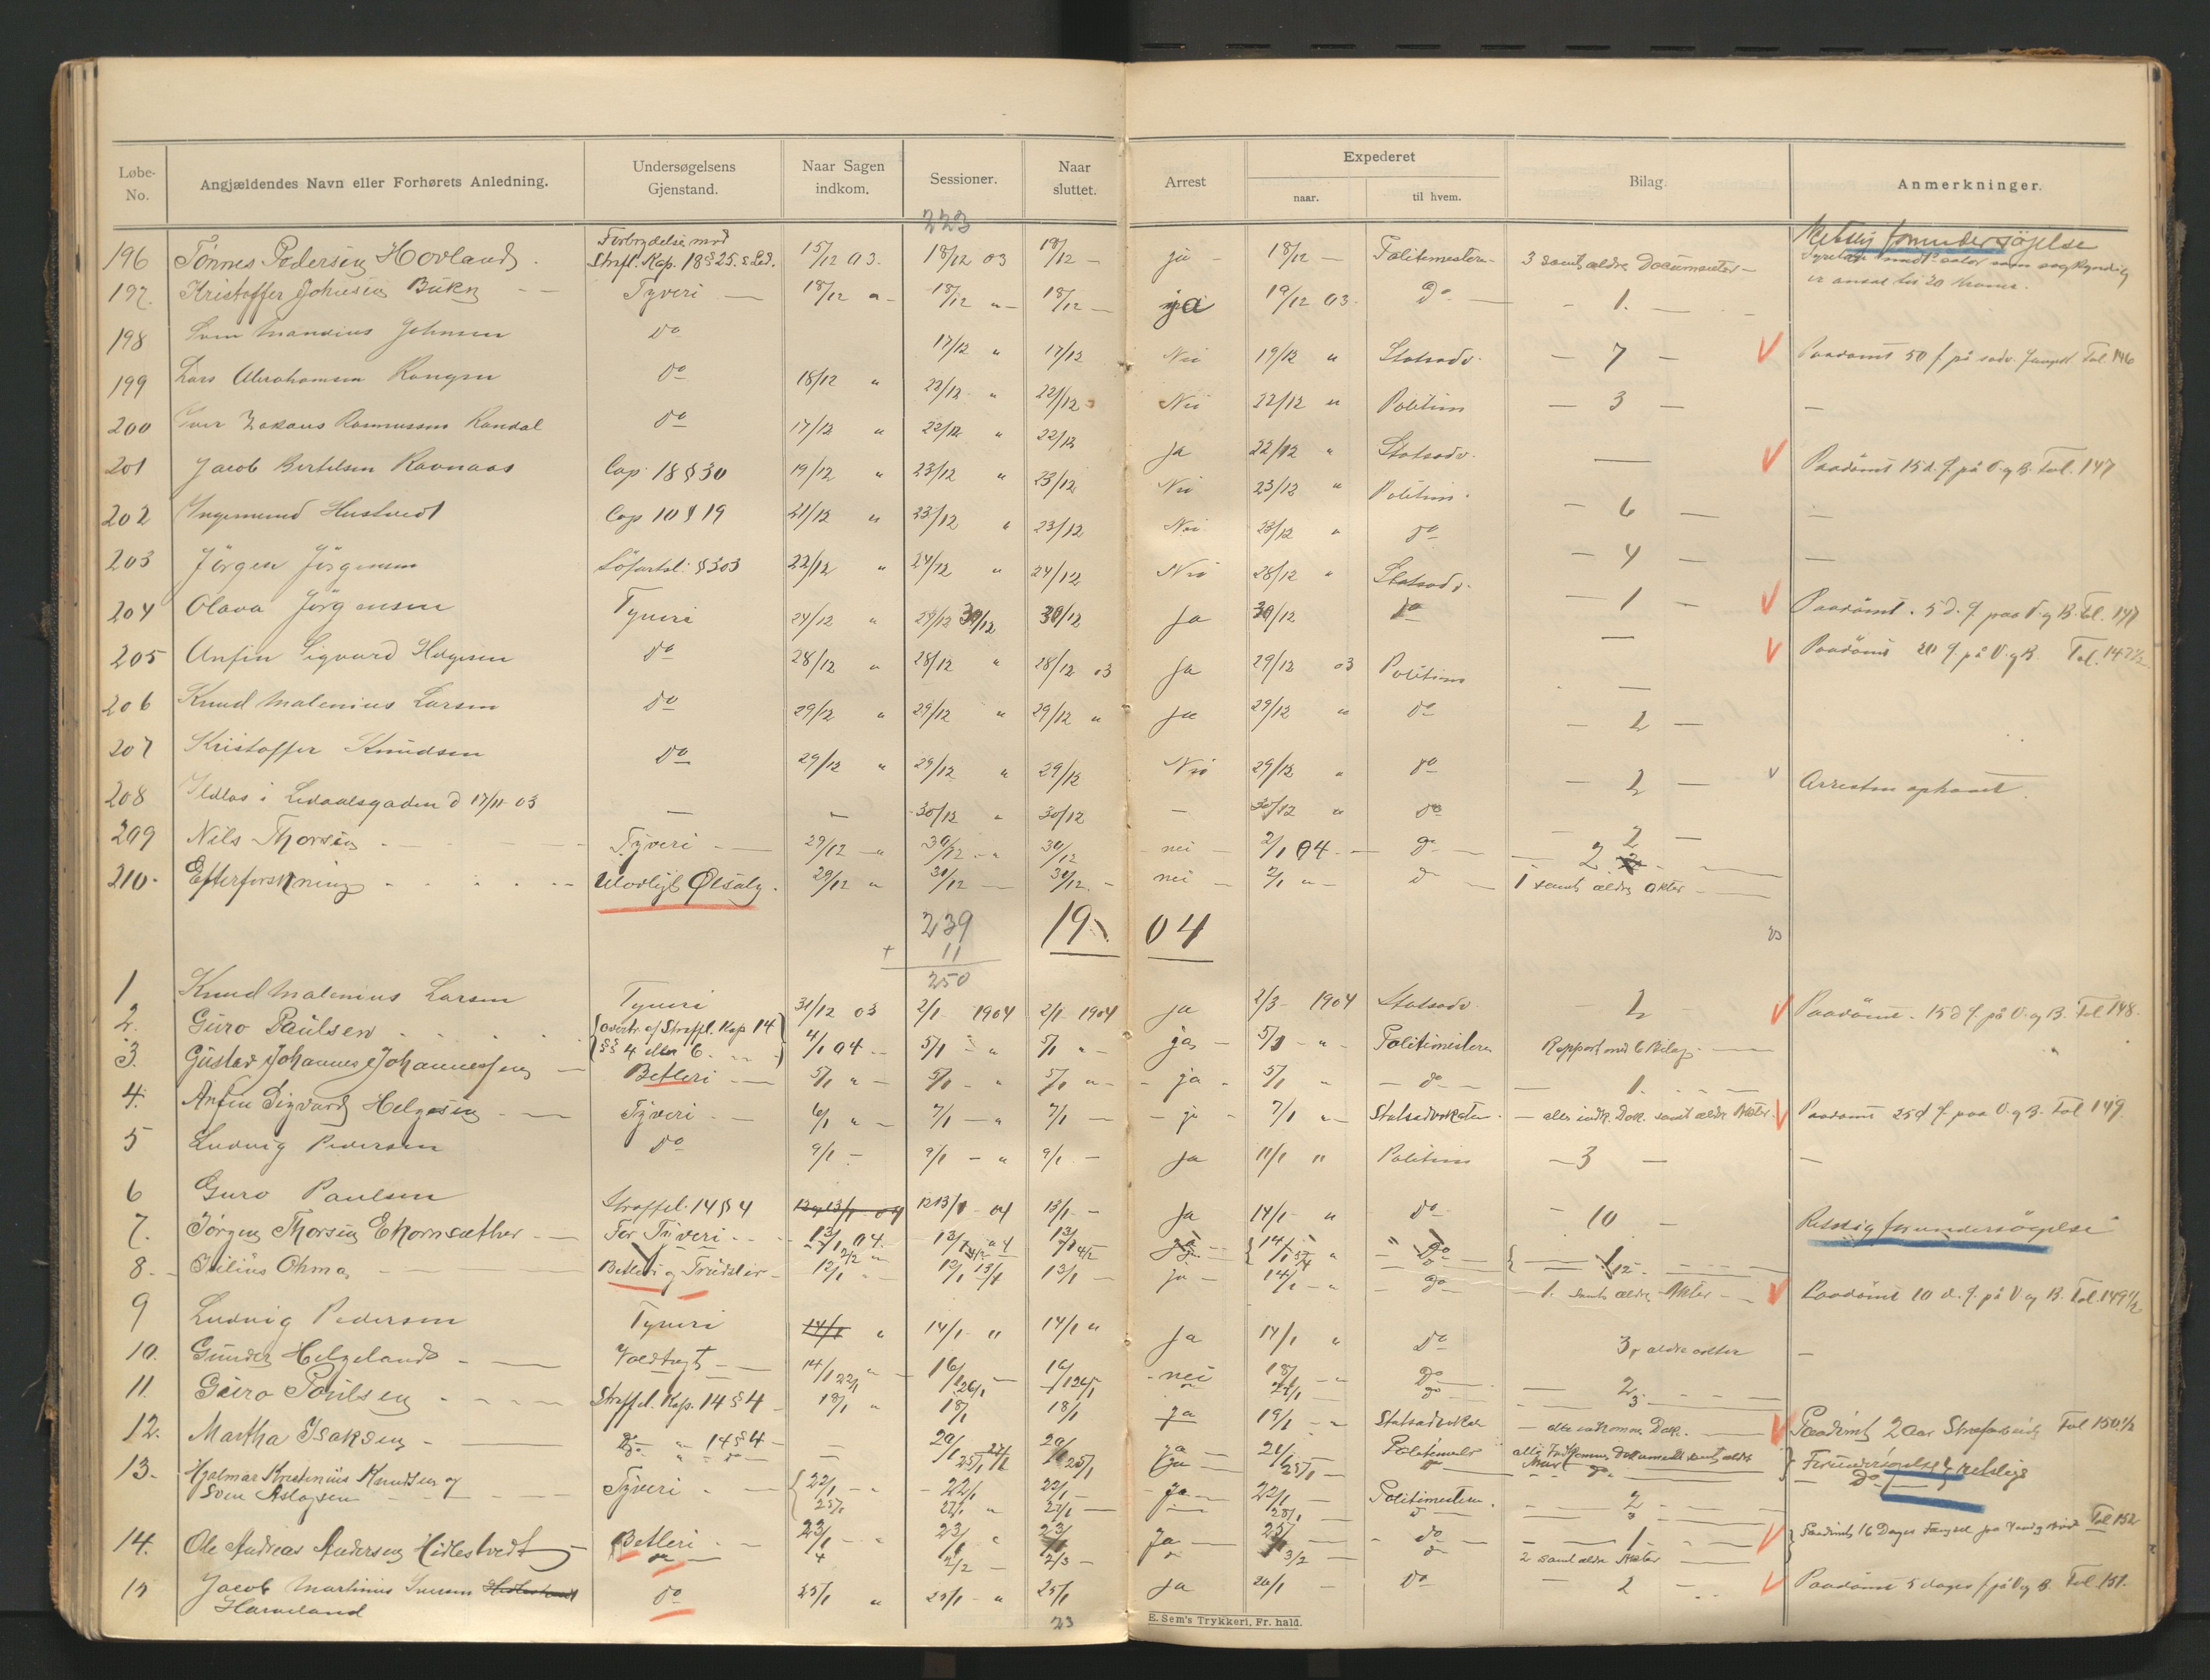 Løbe-No. Angjældendes Navn eller Forhørets Anledning. Undersøgelsens Gjenstand. Naar Sagen indkom. Sessioner. Naar sluttet. Arrest Expederet naar. til hvem. Bilag. Anmerkninger.
223
196 Tønnes Pedersen Hovland Forbrydelse mod Strfl. Kap. 18 § 25. 15/12 03. 18/12 03 18/12 — ja 18/12 — Politimesteren 3 samt ældre Documenter —
er ansat til 20 Kroner.
197. Kristoffer Johnsen Bukn — Tyveri — 18/12 " 18/12 " — 18/12 — ja 19/12 03. Do — 1. —
198 Sven Mandius Johnsen do 17/12 " 17/12 Nei 19/12 " Statsadv. — 7 — V Paadømt 50 f på sædv. fangek. Fol. 146
199 Lars Abrahamsen do 18/12 " 22/12 " 22/12 Nei 22/12 " Politim — 3 — —
200 Iver Zakarias Rasmussen do 17/12 " 22/12 " 22/12 Ja 22/12 " Statsadv. — V Paadømt 15 d. f. på V. og B. Fol. 147
201 Jacob Bertelsen Ravnaas Cap. 18 § 30 19/12 " 23/12 " 23/12 Nei 23/12 " Politim. — 6 — —
202 Ingemund Hustvedt Cap 10 § 19 21/12 " 23/12 " 23/12 Nei 23/12 " do — 4 — —
203 Jörgen Jörgensen Söfartsl. § 303 22/12 " 24/12 " 24/12 Nei 28/12 " Statsadv. — 1 — V Paadömt. 5 d. f. paa V. og B. Fol. 147
204 Olava Jörgensen Tyveri 24/12 " 29/12 30/12 30/12 Ja 30/12 do — V Paadömt 20 f. på V. og B. Fol. 147½
205 Anfin Sigvard Helgesen do 28/12 " 28/12 " 28/12 03 Ja 29/12 03 Politim —
206 Knud Malenius Larsen do 29/12 " 29/12 " 29/12 " ja 29/12 " do — 2 —
207 Kristoffer Knudsen do 29/12 " 29/12 " 29/12 Nei 29/12 " do — 2 — v Arresten ophævet.
208 Ildløs i Ledaalsgaden d 17/11 03 — — 30/12 " 30/12 — 30/12 " do — 2 —
209 Nils Thorsen — Tyveri — 29/12 — " 30/12 — " 30/12 nei — 2/1 04. — do — 2
210. Efterforskning Ulovligt Ølsalg. 29/12 " 30/12 — 30/12. — nei — 2/1 " — do — 1 samt ældre Akter —
239 1904
+ 11
250
1 Knud Malenius Larsen Tyveri 31/12 03 2/1 1904 2/1 1904 ja 2/3 1904 Statsadv. — 2 V Paadömt. 15 d f. på V. og B. Fol 148.
2. Guro Paulsen Overtr. af Straffel. Kap 14 §§ 4 eller 6. 4/1 04 — 5/1 — " 5/1 " — ja — 5/1 — " — Politimesteren Rapport med 6 Bilag —
3. Gustav Johannes Johannessen — Betleri — 5/1 " — 5/1 — " 5/1 " — ja — 5/1 " — do — 1.
4. Anfin Sigvard Helgesen — Tyveri — 6/1 " — 7/1 — " 7/1 — ja — 7/1 " — Statsadvokaten. — alle indk. Dok. samt ældre Akter. V Paadömt 25 d f. paa V. og B. Fol 149.
5 Ludvig Pedersen do 9/1 — 9/1 — " 9/1 — Ja 11/1 " Politim — 3 — —
6 Guro Paulsen Straffel. 14 § 4 12 og 13/1 04 12 13/1 — 04 13/1 — Ja 14/1 " do — 10 — Retslig forundersögelse
7. Jörgen Thorsen Ekornsæther — For Tyveri — 13/1 04. 13/1 04 13/1 14/1 do
8. Julius Ohma Betleri og Trudsler — 12/1 " — 12/1 13/1 13/1 — ja — 14/1 — " — do — 1. samt ældre Akter — V Paadömt 10 d. f. på V. og B. Fol. 149½
9 Ludvig Pedersen Tyveri 14/1 " 14/1 " 14/1 " Ja 14/1 " do 3 + ældre akter —
10. Gunder Helgeland — Voldtægt — 14/1 22/1 " — 16/1 26/1 — 16/1 26/1 nei 18/1 27/1 do do 2 3
11. Guro Poulsen Straffel. Kap. 14 § 4 — 18/1 " 18/1 18/1 ja 19/1 — " Statsadvokaten — alle indkomne Dok. — V Paadömt 2 Aar Strafarbeide Fol 150½
12. Martha Isaksen — Do " 14 § 4 — — 20/1 25/1 20/1 25/1 ja — 21/1 25/1 — Politimester alle Indkomne Dokumenter samt ældre Akter } Forundersøgelse retslige do
13. Hjalmar Kristinius Knudsen og
Sven Aslagsen Tyveri 22/1 — " 22/1 22/1 — Ja — 22/1 — Politimesteren. — 2
25/1 27/1 " 27/1 — 28/1 do 3
14. Ole Andreas Andersen Hidlestvedt — Betleri — 23/1 — " 23/1 " 23/1 Ja — 25/1 — do — 1 — V Paadömt 16 Dages Fængsel paa Vand og Bröd Fol 152
2/2 — 2/3 — 3/2 — do 2 samt ældre Akter
15 Jacob Martinius Iversen Hidlestvedt do 25/1 " 25/1 " 25/1 Ja 26/1 — do — 2 — V Paadömt 5 dages f på V og B. Fol 151.
Haraland
23
E. Sem's Trykkeri, Fr. hald.